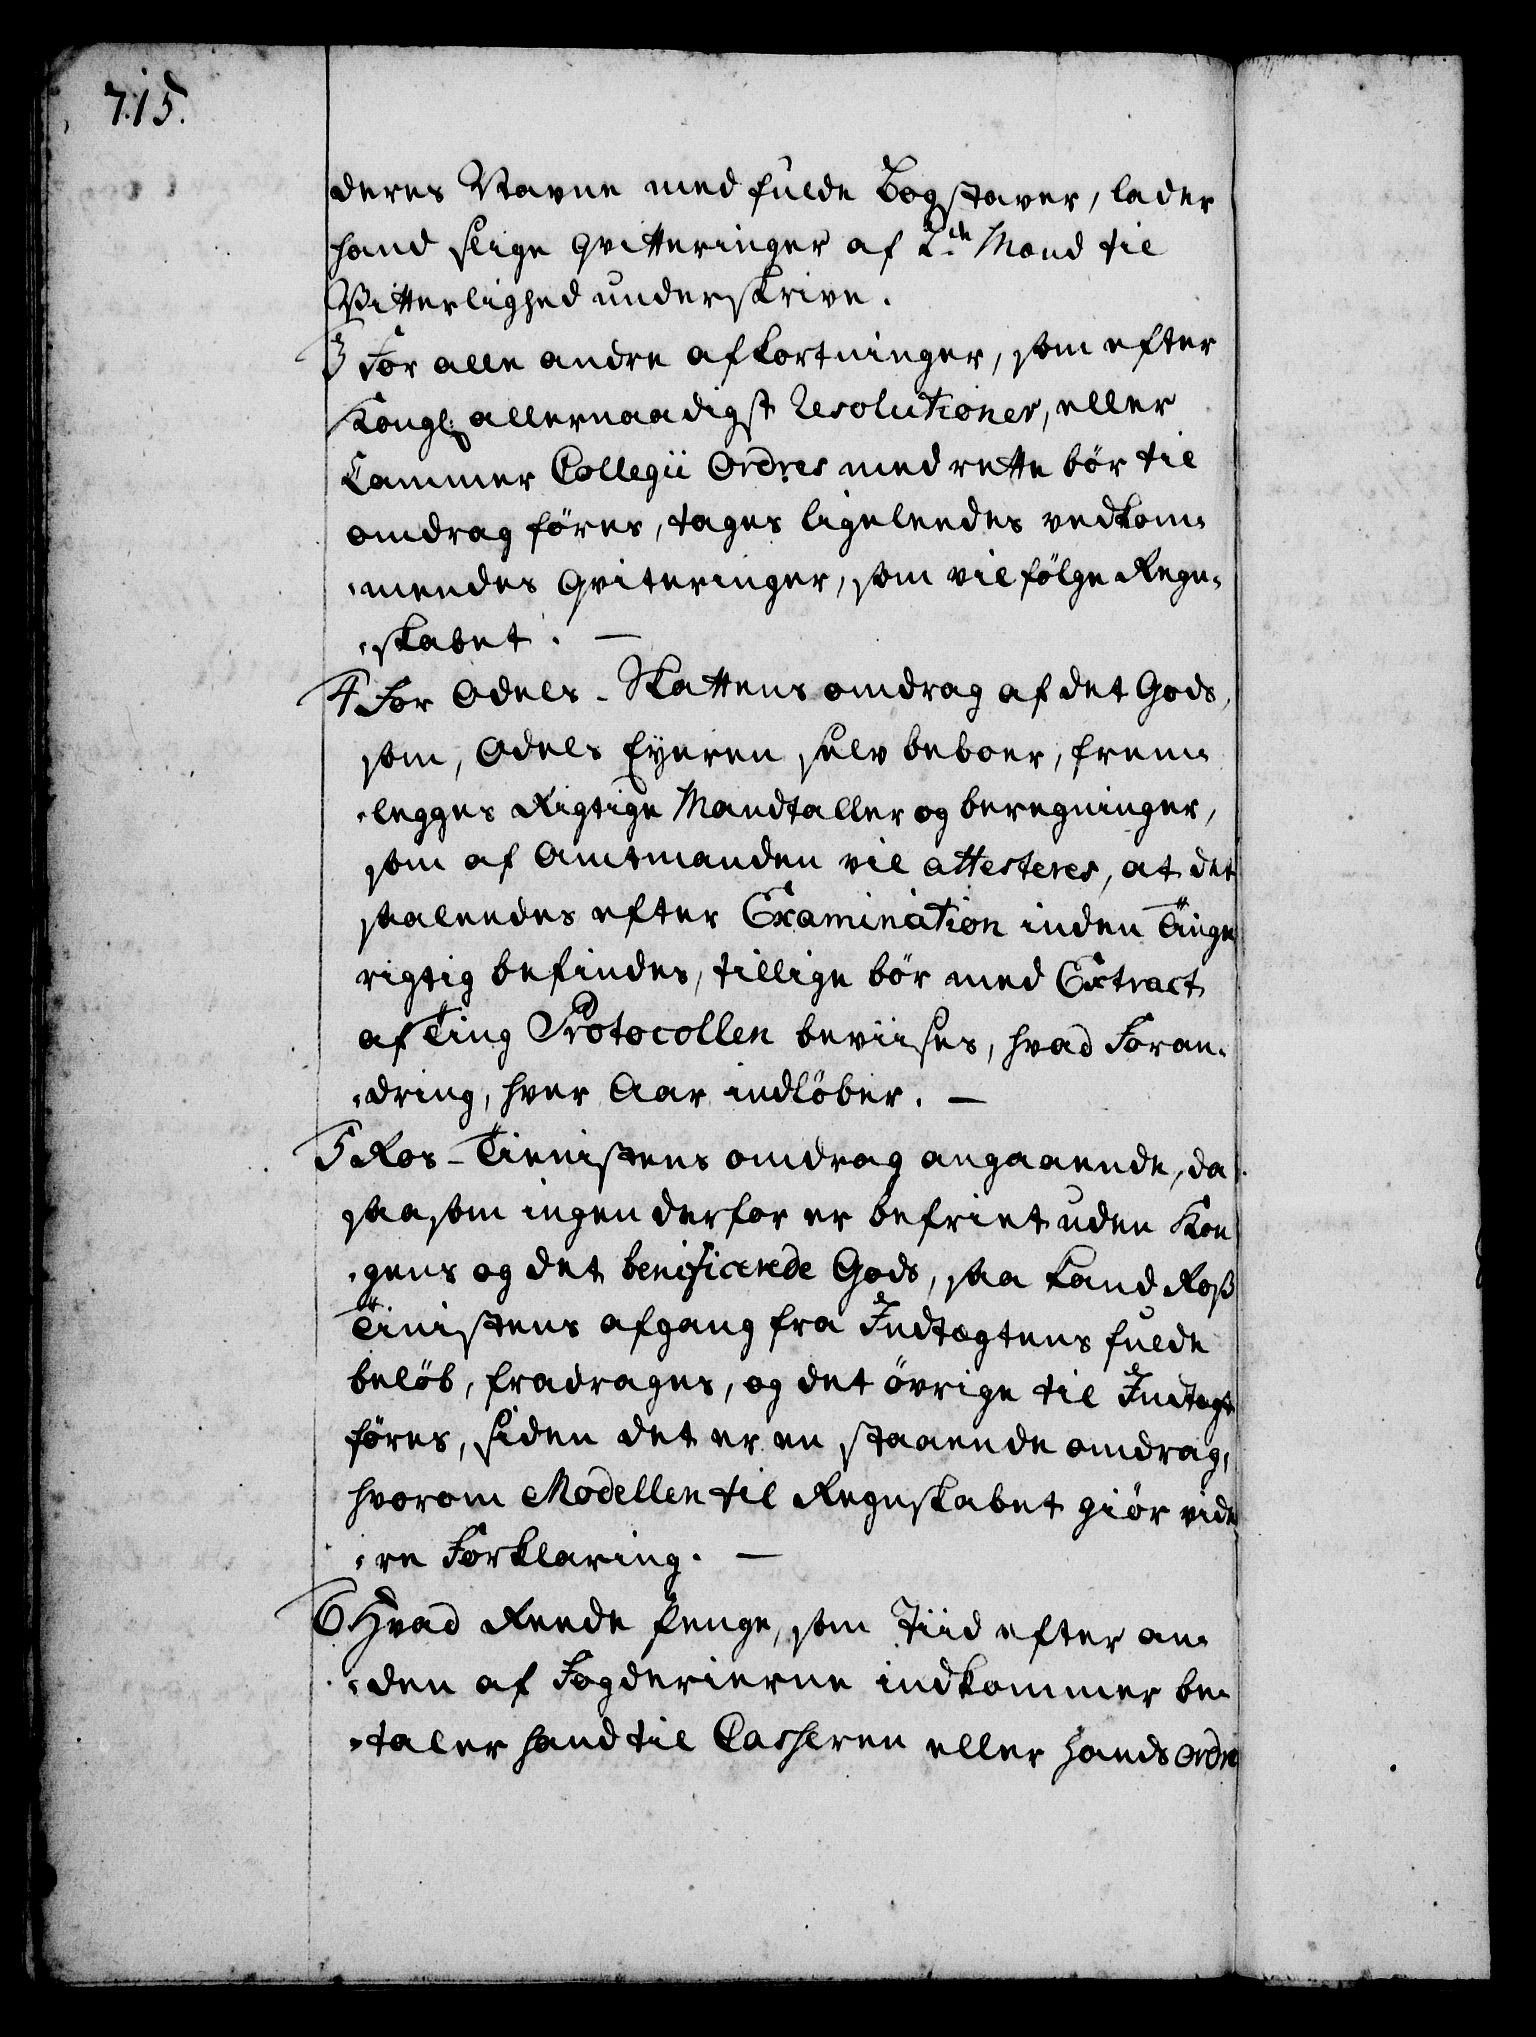 715.
deres Navne med fulde Bogstaver, lader
hand slige qvitteringer af 2de Mand til
Vitterlighed underskrive.
3 For alle andre afkortninger, som efter
Kongl: allernaadigst Resolutioner, eller
Cammer Collegii Ordres med rette bör til
omdrag föres, tages ligeleedes vedkom-
-mendes qviteringer, som vil fölge Regn-
-skabet. —
4 For Odels-Skattens omdrag af det Gods,
som, Odels Eyeren selv beboer, frem-
-legges Rigtige Mandtaller og beregninger,
som af Amtmanden vil attesteres, at det
saaleedes efter Examination inden Tinge
rigtig befindes, tillige bör med Extract
af Ting Protocollen beviises, hvad Foran-
-dring, hver Aar indlöber. —
5 Ros-Tienistens omdrag angaaende, da
saasom ingen derfor er befriet uden Kon
-gens og det beneficerede Gods, saa kand Ross
Tienistens afgang fra Indtægtens fulde
belöb, fradrages, og det övrige til Indtægt
föres, siden det er en staaende omdrag,
hvorom Modellen til Regnskabet giör vide
-re Forklaring. —
6 Hvad Reede Penge, som Tiid efter an-
-den af Fogderierne indkommer be-
-taler hand til Casheren eller hands ordre